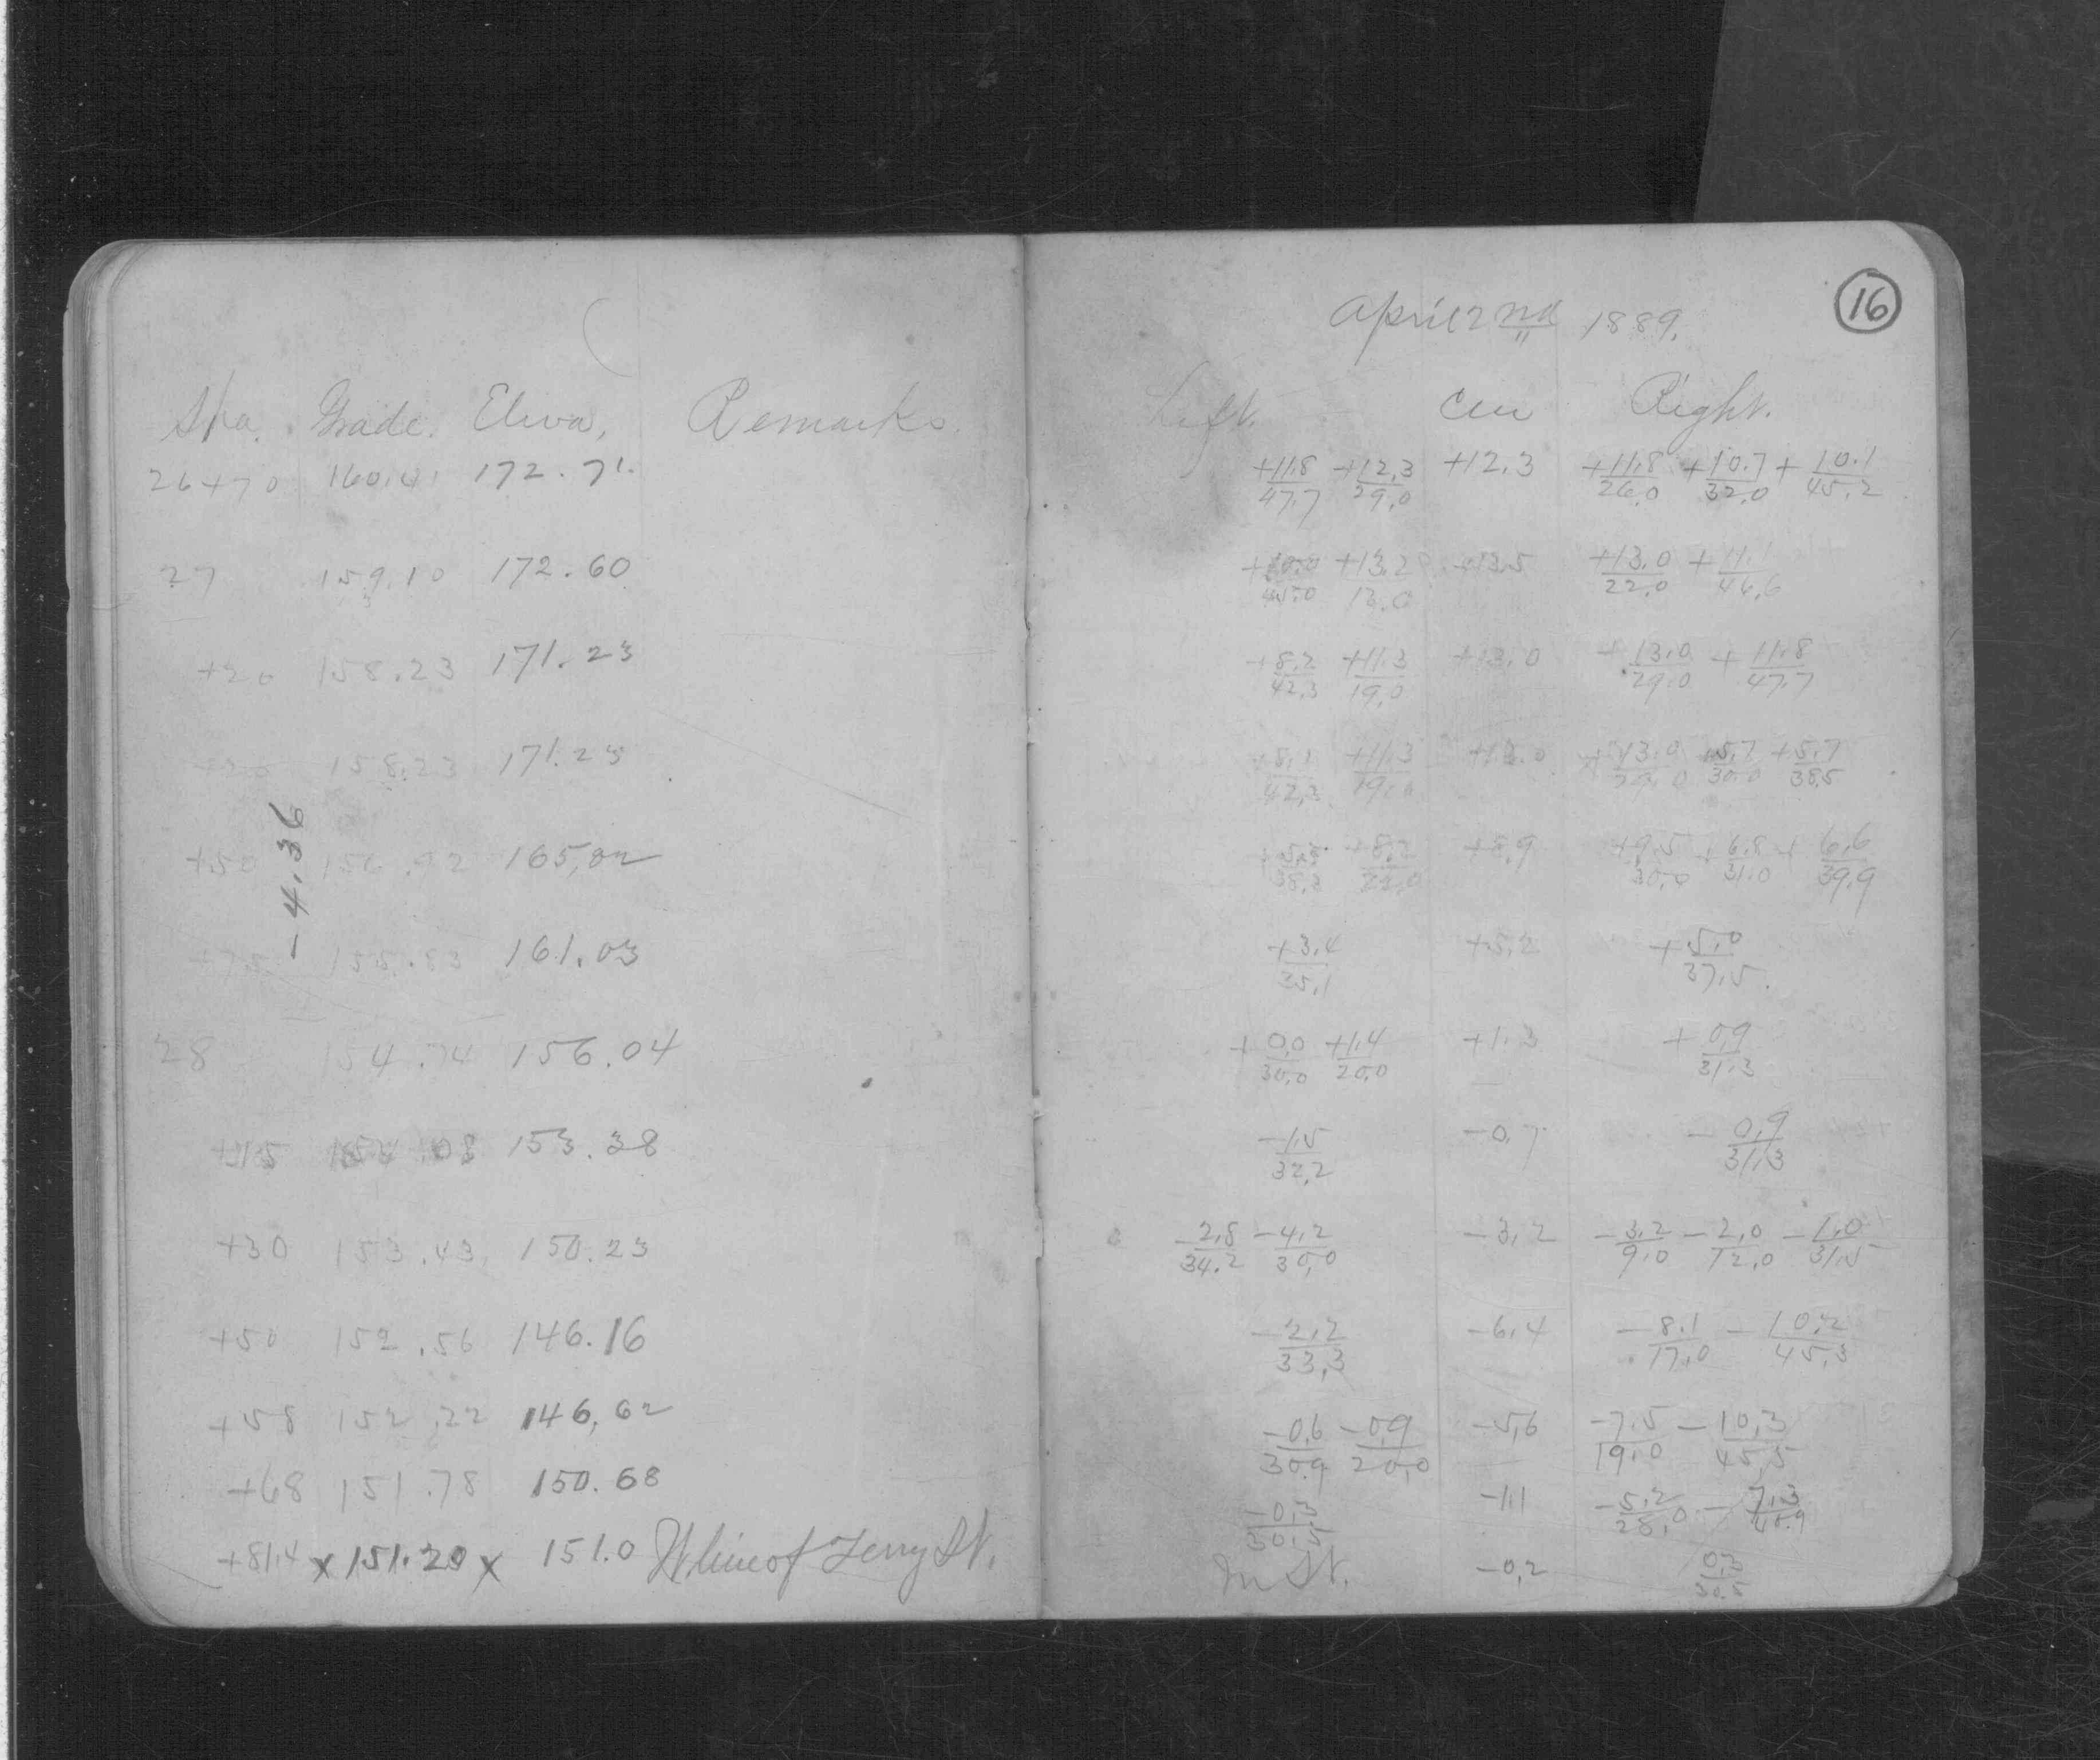 April 2nd 1889.
16
Sta. Grade. Eleva, Remarks. Left. Cen Right.
26+70 160.41 172.71. +11.8/47.7 +12.3/29.0 +12.3 +11.8/26.0 +10.7/32.0 +10.1/45.2
27 159.10 172.60 45.0 +13.2 +13.5 +13.0/22.0 +11.1/46.6
+20 158.23 171.23 +8.2/42.3 +11.3/19.0 +13.0 +13.0/29.0 +11.8/47.7
+20 158.23 171.23 42.3 +11.3/19.0 +13.0 +13.0/29.0 +5.7/30.0 +5.7/38.5
-4.36
+50 156.92 165.02 38.3 +8.2/22.0 +8.9 +9.5/30.0 +6.8/31.0 +6.6/39.9
+75 155.83 161.03 +3.4/35.1 +5.2 +5.0/37.5.
28 154.74 156.04 +0.0/30.0 +1.4/20.0 +1.3 +0.9/31.3
+15 154.08 153.38 -1.5/32.2 -0.7 -0.9/31.3
+30 153.43 150.23 -2.8/34.2 -4.2/30.0 -3.2 -3.2/9.0 -2.0/12.0 -1.0/31.5
+50 152.56 146.16 -2.2/33.3 -6.4 -8.1/17.0 -10.2/45.3
+58 152.22 146.62 -0.6/30.9 -0.9/20.0 -5.6 -7.5/19.0 -10.3/45.5
+68 151.78 150.68 -0.3/30.5 -1.1 -5.2/28.0 -7.3
+81.4 x 151.20 x 151.0 W line of Terry St. In St. -0.2 0.3/30.5